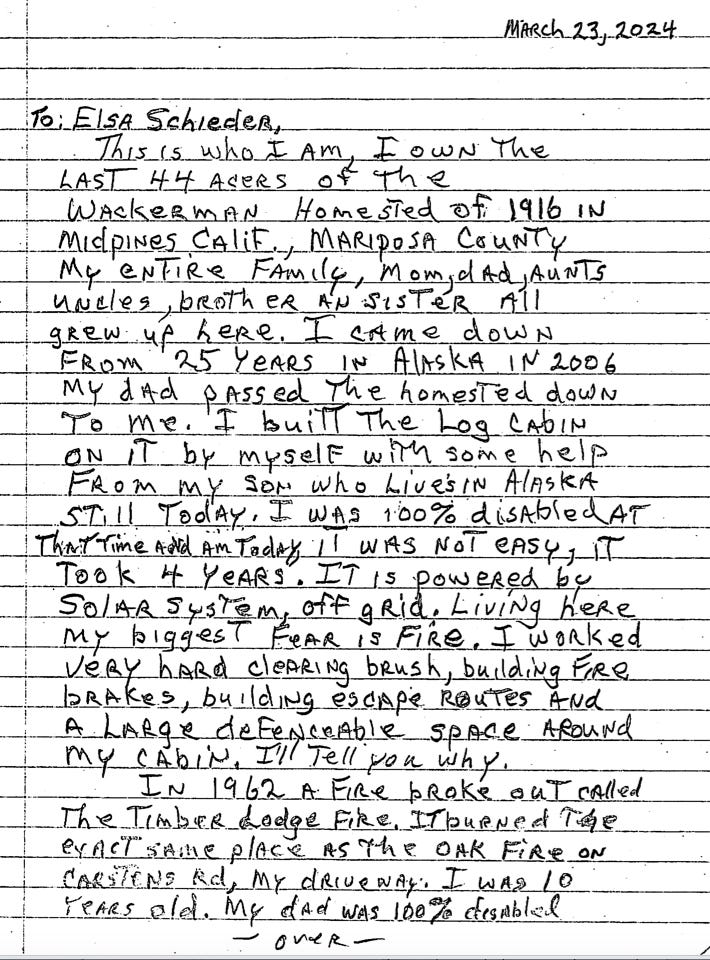 March 23, 2024
To: Elsa Schieder,
This is who I am, I own the
last 44 acers of the
Wackerman Homested of 1916 in
Midpines Calif., Mariposa County
My entire family, mom, dad, aunts
uncles, brother an sister all
grew up here. I came down
from 25 years in Alaska in 2006
My dad passed the homested down
to me. I built the Log Cabin
on it by myself with some help
from my son who Lives in Alaska
still today. I was 100% disabled at
that time and am today, it was not easy, it
took 4 years. It is powered by
solar system, off grid. Living here
my biggest fear is fire. I worked
very hard clearing brush, building fire
brakes, building escape routes and
a large defenceable space around
my cabin. I'll tell you why.
In 1962 a fire broke out called
the Timber Lodge Fire. It burned the
exact same place as the Oak Fire on
Carstens Rd, my driveway. I was 10
years old. My dad was 100% disabled
— over —